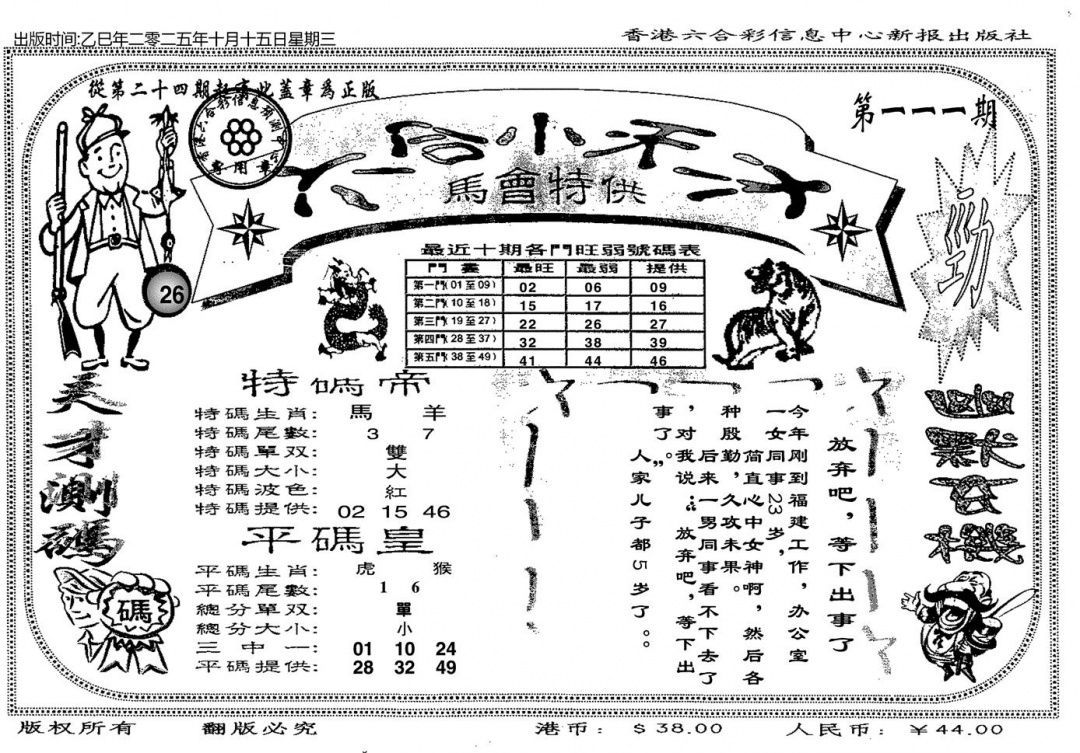 出版时间:乙巳年二零二五年十月十五日星期三
香港六合彩信息中心新报出版社
從第二十四期起有此蓋章爲正版
第一一一期
專用章
馬會特供
勁
26
最近十期各門旺弱號碼表
門畫 最旺 最弱 提供
第一門(01至09) 02 06 09
第二門(10至18) 15 17 16
第三門(19至27) 22 26 27
第四門(28至37) 32 38 39
第五門(38至49) 41 44 46
天才測碼
碼
特碼帝
特碼生肖: 馬 羊
特碼尾數: 3 7
特碼單双: 雙
特碼大小: 大
特碼波色: 紅
特碼提供: 02 15 46
平碼皇
平碼生肖: 虎 猴
平碼尾數: 1 6
總分單双: 單
總分大小: 小
三中一: 01 10 24
平碼提供: 28 32 49
放弃吧，等下出事了
今年刚到福建工作，办公室
一女同事23岁，
简直心中女神啊，然后各
种殷勤，久攻未果。
后来一男同事看不下去了
，对我说：“放弃吧，等下出
事了”。
人家儿子都5岁了。。
版权所有 翻版必究 港币：$38.00 人民币：￥44.00